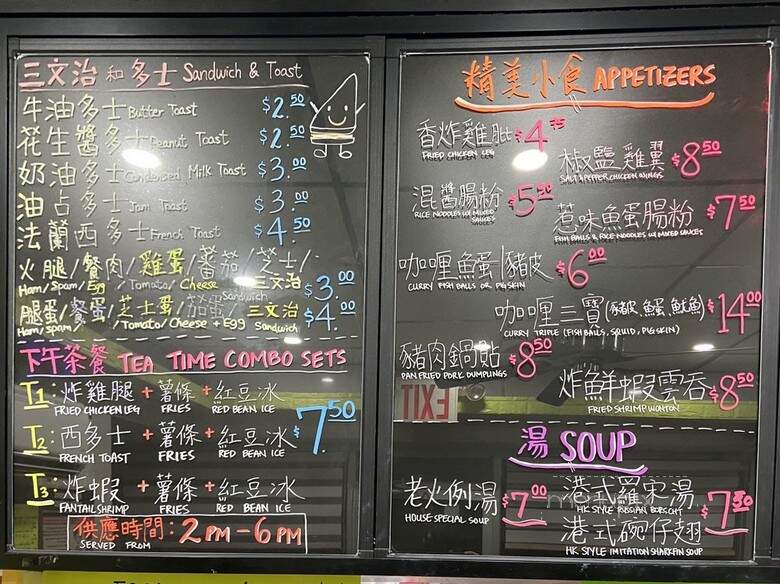 三文治 和 多士 Sandwich & Toast
牛油多士 Butter Toast $2.50
花生醬多士 Peanut Toast $2.50
奶油多士 Condensed Milk Toast $3.00
油占多士 Jam Toast $3.00
法蘭西多士 French Toast $4.50
火腿/餐肉/雞蛋/蕃茄/芝士/三文治 $3.00
Ham/Spam/Egg/Tomato/Cheese Sandwich
腿蛋/餐蛋/芝士蛋/茄蛋/三文治 $4.00
Ham/Spam/Tomato/Cheese + Egg Sandwich
下午茶餐 TEA TIME COMBO SETS
T1: 炸雞腿 + 薯條 + 紅豆冰
FRIED CHICKEN LEG FRIES RED BEAN ICE
T2: 西多士 + 薯條 + 紅豆冰 $7.50
FRENCH TOAST FRIES RED BEAN ICE
T3: 炸蝦 + 薯條 + 紅豆冰
FANTAIL SHRIMP FRIES RED BEAN ICE
供應時間: 2PM-6PM
SERVED FROM
精美小食 APPETIZERS
香炸雞肶 $4.75
FRIED CHICKEN LEG
椒鹽雞翼 $8.50
SALT & PEPPER CHICKEN WINGS
混醬腸粉 $5.50
RICE NOODLES W/ MIXED SAUCES
惹味魚蛋腸粉 $7.50
FISH BALLS & RICE NOODLES W/ MIXED SAUCES
咖喱魚蛋/豬皮 $6.00
CURRY FISH BALLS OR PIG SKIN
咖喱三寶(豬皮,魚蛋,魷魚) $14.00
CURRY TRIPLE (FISH BALLS, SQUID, PIG SKIN)
豬肉鍋貼 $8.50
PAN FRIED PORK DUMPLINGS
炸鮮蝦雲吞 $8.50
FRIED SHRIMP WONTON
EXIT
湯 SOUP
老火例湯 $7.00
HOUSE SPECIAL SOUP
港式羅宋湯
HK STYLE RUSSIAN BORSCHT
港式碗仔翅 $7.50
HK STYLE IMITATION SHARKFIN SOUP